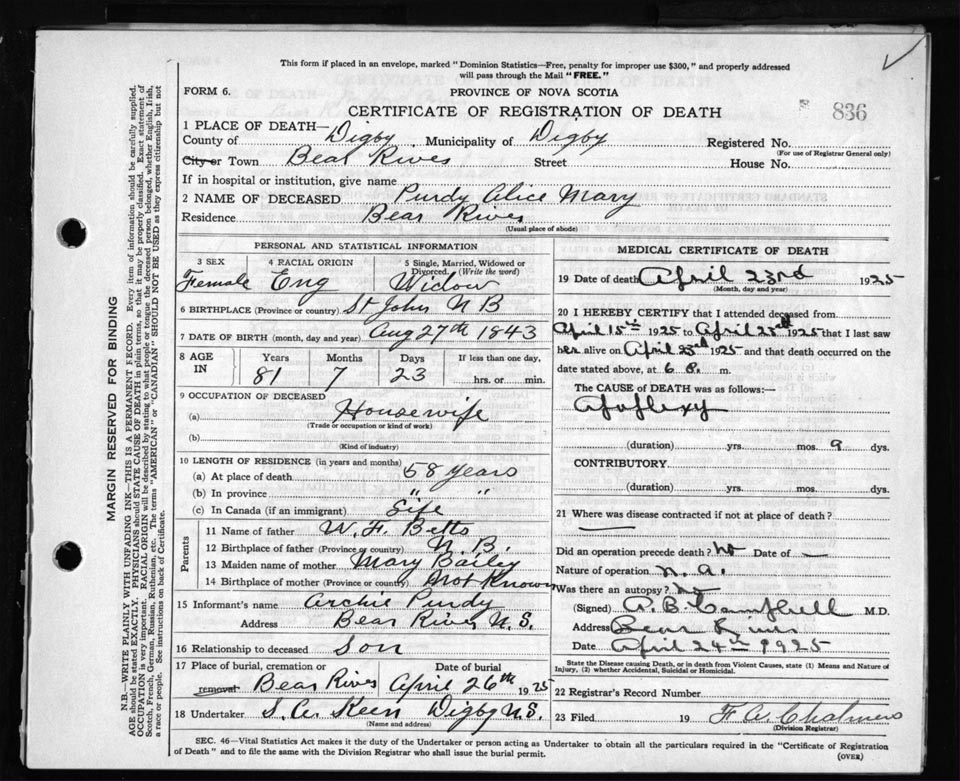 This form if placed in an envelope, marked "Dominion Statistics—Free, penalty for improper use $300," and properly addressed
will pass through the Mail "FREE."
FORM 6. PROVINCE OF NOVA SCOTIA
CERTIFICATE OF REGISTRATION OF DEATH 836
1 PLACE OF DEATH—
County of Digby Municipality of Digby Registered No.
(For use of Registrar General only)
City or Town Bear River Street House No.
If in hospital or institution, give name
2 NAME OF DECEASED Purdy Alice Mary
Residence Bear River
(Usual place of abode)
PERSONAL AND STATISTICAL INFORMATION
3 SEX 4 RACIAL ORIGIN 5 Single, Married, Widowed or
Divorced. (Write the word)
Female Eng Widow
6 BIRTHPLACE (Province or country) St John N B
7 DATE OF BIRTH (month, day and year) Aug 27th 1843
8 AGE IN Years Months Days If less than one day,
81 7 23 hrs. or min.
9 OCCUPATION OF DECEASED
(a) Housewife
(Trade or occupation or kind of work)
(b)
(Kind of industry)
10 LENGTH OF RESIDENCE (in years and months)
(a) At place of death 58 years
(b) In province " "
(c) In Canada (if an immigrant) Life
Parents
11 Name of father W. H. Betts
12 Birthplace of father (Province or country) N. B.
13 Maiden name of mother Mary Bailey
14 Birthplace of mother (Province or country) Not Known
15 Informant's name Archie Purdy
Address Bear River N. S.
16 Relationship to deceased Son
17 Place of burial, cremation or removal Date of burial
Bear River April 26th 1925
18 Undertaker Keen Digby N. S.
(Name and address)
MEDICAL CERTIFICATE OF DEATH
19 Date of death April 23rd 1925
(Month, day and year)
20 I HEREBY CERTIFY that I attended deceased from
April 15th 1925 to April 23rd 1925 that I last saw
her alive on April 23rd 1925 and that death occurred on the
date stated above, at 6 m.
The CAUSE of DEATH was as follows:—
Apoplexy
(duration) yrs. mos. 9 dys.
CONTRIBUTORY
(duration) yrs. mos. dys.
21 Where was disease contracted if not at place of death?
Did an operation precede death? no Date of —
Nature of operation n. a.
Was there an autopsy? no
(Signed) Campbell M.D.
Address Bear River
Date April 24th 1925
State the Disease causing Death, or in death from Violent Causes, state (1) Means and Nature of
Injury, (2) whether Accidental, Suicidal or Homicidal.
22 Registrar's Record Number
23 Filed 19
(Division Registrar)
SEC. 46—Vital Statistics Act makes it the duty of the Undertaker or person acting as Undertaker to obtain all the particulars required in the "Certificate of Registration
of Death" and to file the same with the Division Registrar who shall issue the burial permit. (OVER)
MARGIN RESERVED FOR BINDING
N.B.—WRITE PLAINLY WITH UNFADING INK—THIS IS A PERMANENT RECORD. Every item of information should be carefully supplied.
AGE should be stated EXACTLY. PHYSICIANS should STATE CAUSE OF DEATH in plain terms, so that it may be properly classified. Exact statement of
OCCUPATION is very important. RACIAL ORIGIN will be described by stating to what people or tongue the deceased person belonged, whether English, Irish,
Scotch, French, German, Russian, Ruthenian, etc. The terms "AMERICAN" or "CANADIAN" SHOULD NOT BE USED as they express citizenship but not
a race or people. See instructions on back of Certificate.